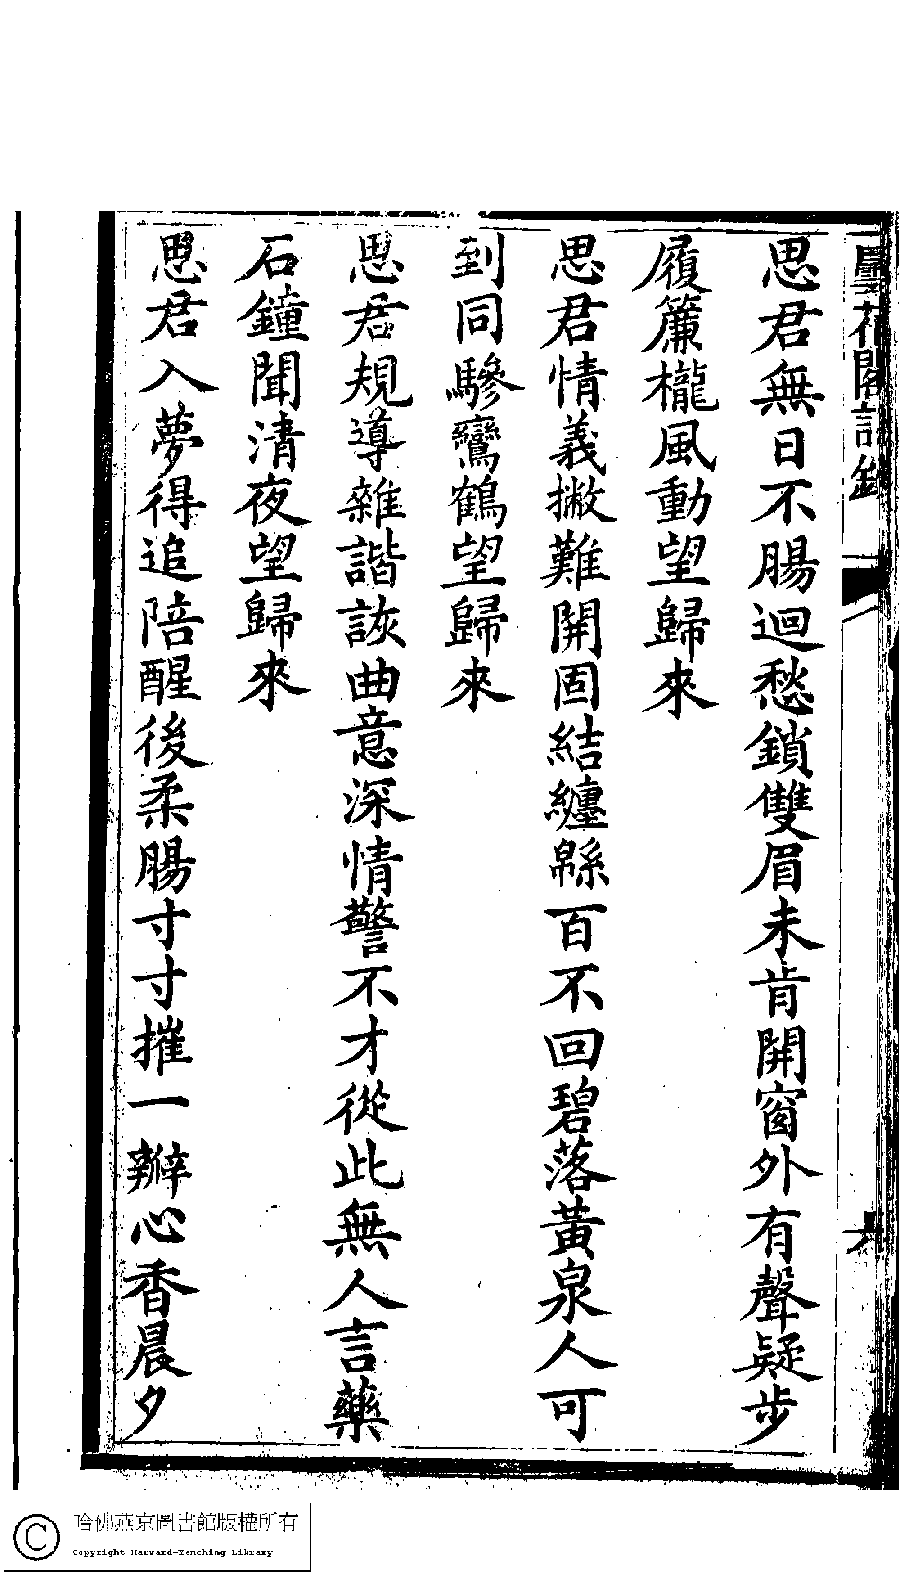 曇花閣詩鈔
思君無日不腸迴愁鎖雙眉未肯開窗外有聲疑步
履簾櫳風動望歸來
思君情義撇難開固結纏緜百不回碧落黃泉人可
到同驂鸞鶴望歸來
思君規導雜諧詼曲意深情警不才從此無人言藥
石鐘聞清夜望歸來
思君入夢得追陪醒後柔腸寸寸摧一瓣心香晨夕
哈佛燕京圖書館版權所有
Copyright Harvard-Yenching Library